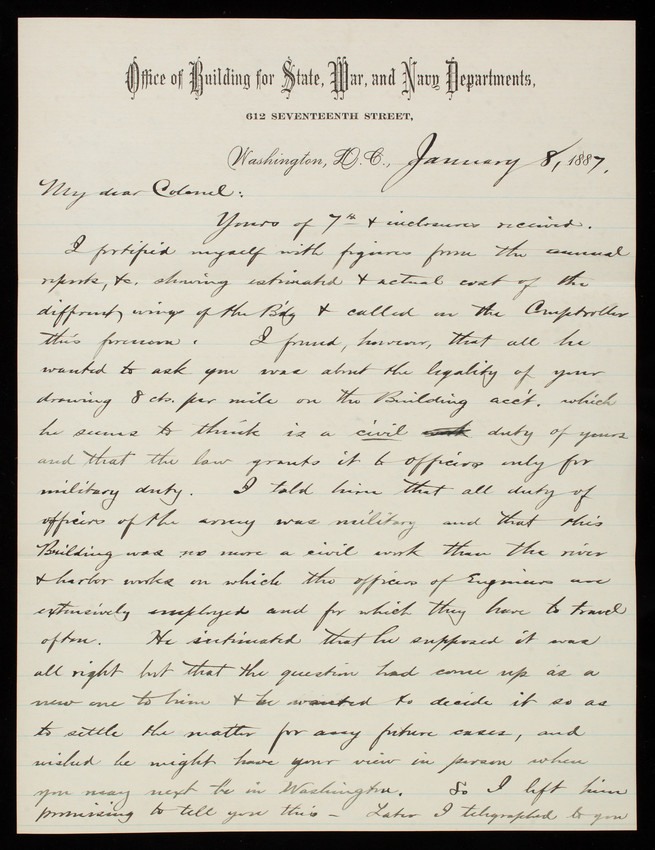 Office of Building for State, War, and Navy Departments,
612 SEVENTEENTH STREET,
Washington, D.C., January 8, 1887.
My dear Colonel:
Yours of 7th & inclosures received.
I fortified myself with figures from the annual
reports, &c. showing estimated & actual cost of the
different wings of the B'dg & called on the Comptroller
this forenoon. I found, however, that all he
wanted to ask you was about the legality of your
drawing 8 cts. per mile on the Building acc't. which
he seems to think is a civil duty of yours
and that the law grants it to officers only for
military duty. I told him that all duty of
officers of the army was military and that this
Building was no more a civil work than the river
& harbor works on which the officers of Engineers are
extensively employed and for which they have to travel
often. He intimated that he supposed it was
all right but that the question had come up as a
new one to him & he wanted to decide it so as
to settle the matter for any future cases, and
wished he might have your view in person when
you may next be in Washington. So I left him
promising to tell you this — Later I telegraphed to you